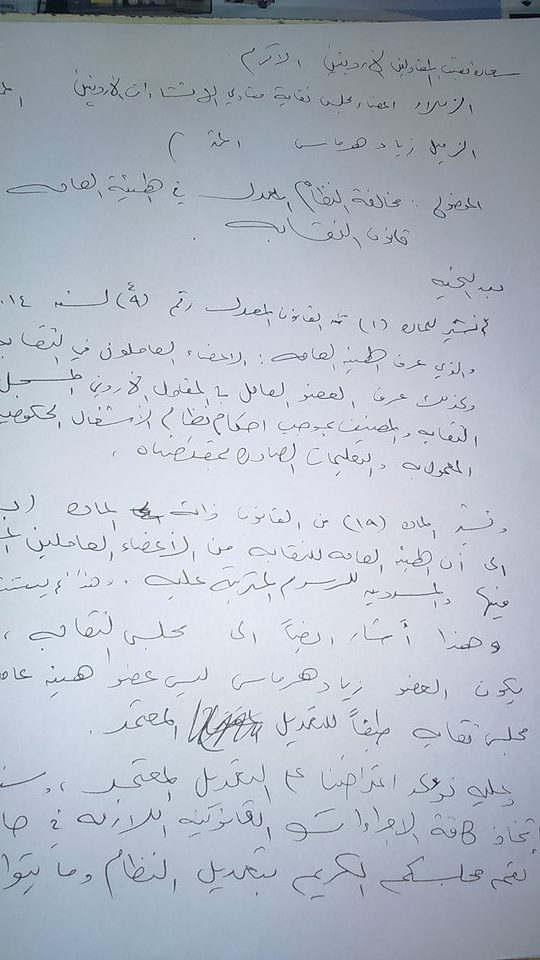 سعادة نقيب المقاولين الاردنيين الاكرم
الزملاء اعضاء مجلس نقابة مقاولي الانشاءات الاردنيين
الزميل زياد هرماس
الموضوع : مخالفة النظام المعدل في الهيئة العامه
قانون النقابه .
بعد التحيه
نشير للماده (١) من القانون المعدل رقم (٩) لسنه ٢٠١٤
والذي عرف الهيئه العامه : الاعضاء العاملون في النقابه
وكذلك عرف العضو العامل بالمقاول الاردني المسجل
النقابه والمصنف بموجب احكام نظام الأشغال الحكوميه
المعمول به والتعليمات الصادره بمقتضاه .
ونشير الماده (١٩) من القانون ذاته الماده (ب
الى أن الهيئه العامه للنقابه من الأعضاء العاملين
فيها والمسددين للرسوم المترتبة عليه . وهذا
وهذا أشار ايضاً الى مجلس النقابه ،
يكون العضو زياد هرماس ليس عضو هيئه عامه
مجلس نقابه طبقاً للتعديل المعتمد .
وعليه نؤكد اعتراضنا على التعديل المعتمد ،
إتخاذ كافة الاجراءات القانونيه اللازمه في حال
مجلسكم الكريم بتعديل النظام وما